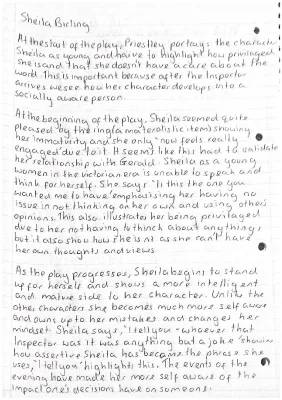 Sheila Birling
At the start of the play, Priestley portrays the character
Sheila as young and naive to highlight how privileged
she is and that she doesn't have a care about the
word. This is important because after the Inspector
arrives we see how her character develops into a
socially aware person.
At the beginning of the play, Sheila seemed quite
pleased by the ring (a materalistic item) showing
her immaturity and she only "now feels really
engaged" due to it. It seems like this had to validate
her relationship with Gerald. Sheila as a young
women in the victorian era is unable to speak and
think for herself. She says "is this the one you
wanted me to have" emphasising her having no
issue in not thinking on her own and using others
opinions. This also illustrates her being privilaged
due to her not having to think about anything,
but it also show how she isn't as she can't have
her own thoughts and views.
As the play progresses, Sheila begins to stand
up for herself and shows a more intelligent
and mature side to her character. Unlike the
other characters she becomes much more self aware
and owns up to her mistakes and changes her
mindset. Sheila says, "I tell you - whoever that
Inspector was it was anything but a joke" showing
how assertive Sheila has became the phrase she
uses, "I tell you" highlights this. The events of the
evening have made her more self aware of the
impact one's decisions have on someone.